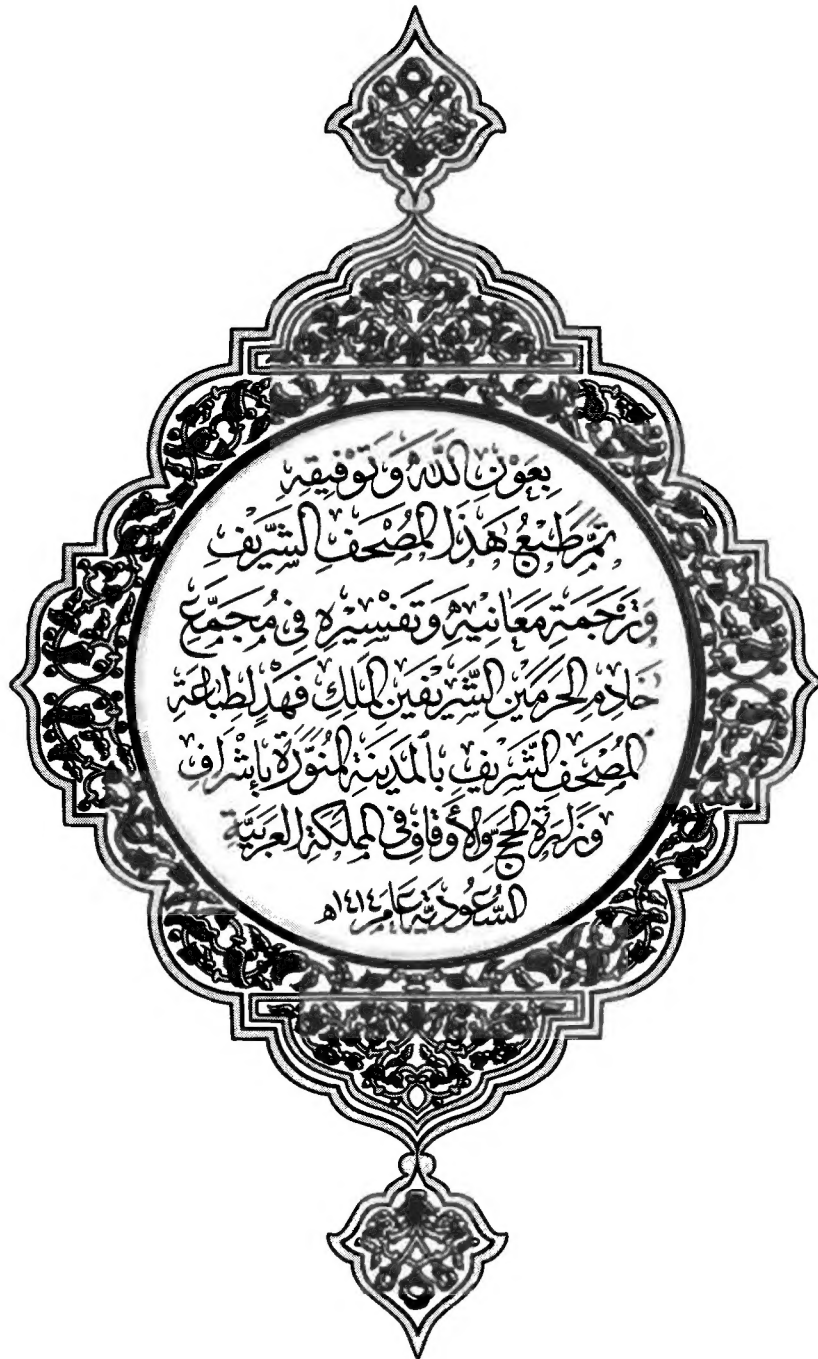 بِعَوْنِ اللَّهِ وَتَوْفِيقِهِ
تَمَّ طَبْعُ هَذَا المُصْحَفِ الشَّرِيفِ
وَتَرْجَمَةِ مَعَانِيهِ وَتَفْسِيرِهِ فِي مُجَمَّعِ
خَادِمِ الحَرَمَيْنِ الشَّرِيفَيْنِ المَلِكِ فَهْد لِطِبَاعَةِ
المُصْحَفِ الشَّرِيفِ بِالمَدِينَةِ المُنَوَّرَةِ بِإِشْرَافِ
وَزَارَةِ الحَجِّ وَالأَوْقَافِ فِي المَمْلَكَةِ العَرَبِيَّةِ
السُّعُودِيَّةِ عَامَ ١٤١٤ھ